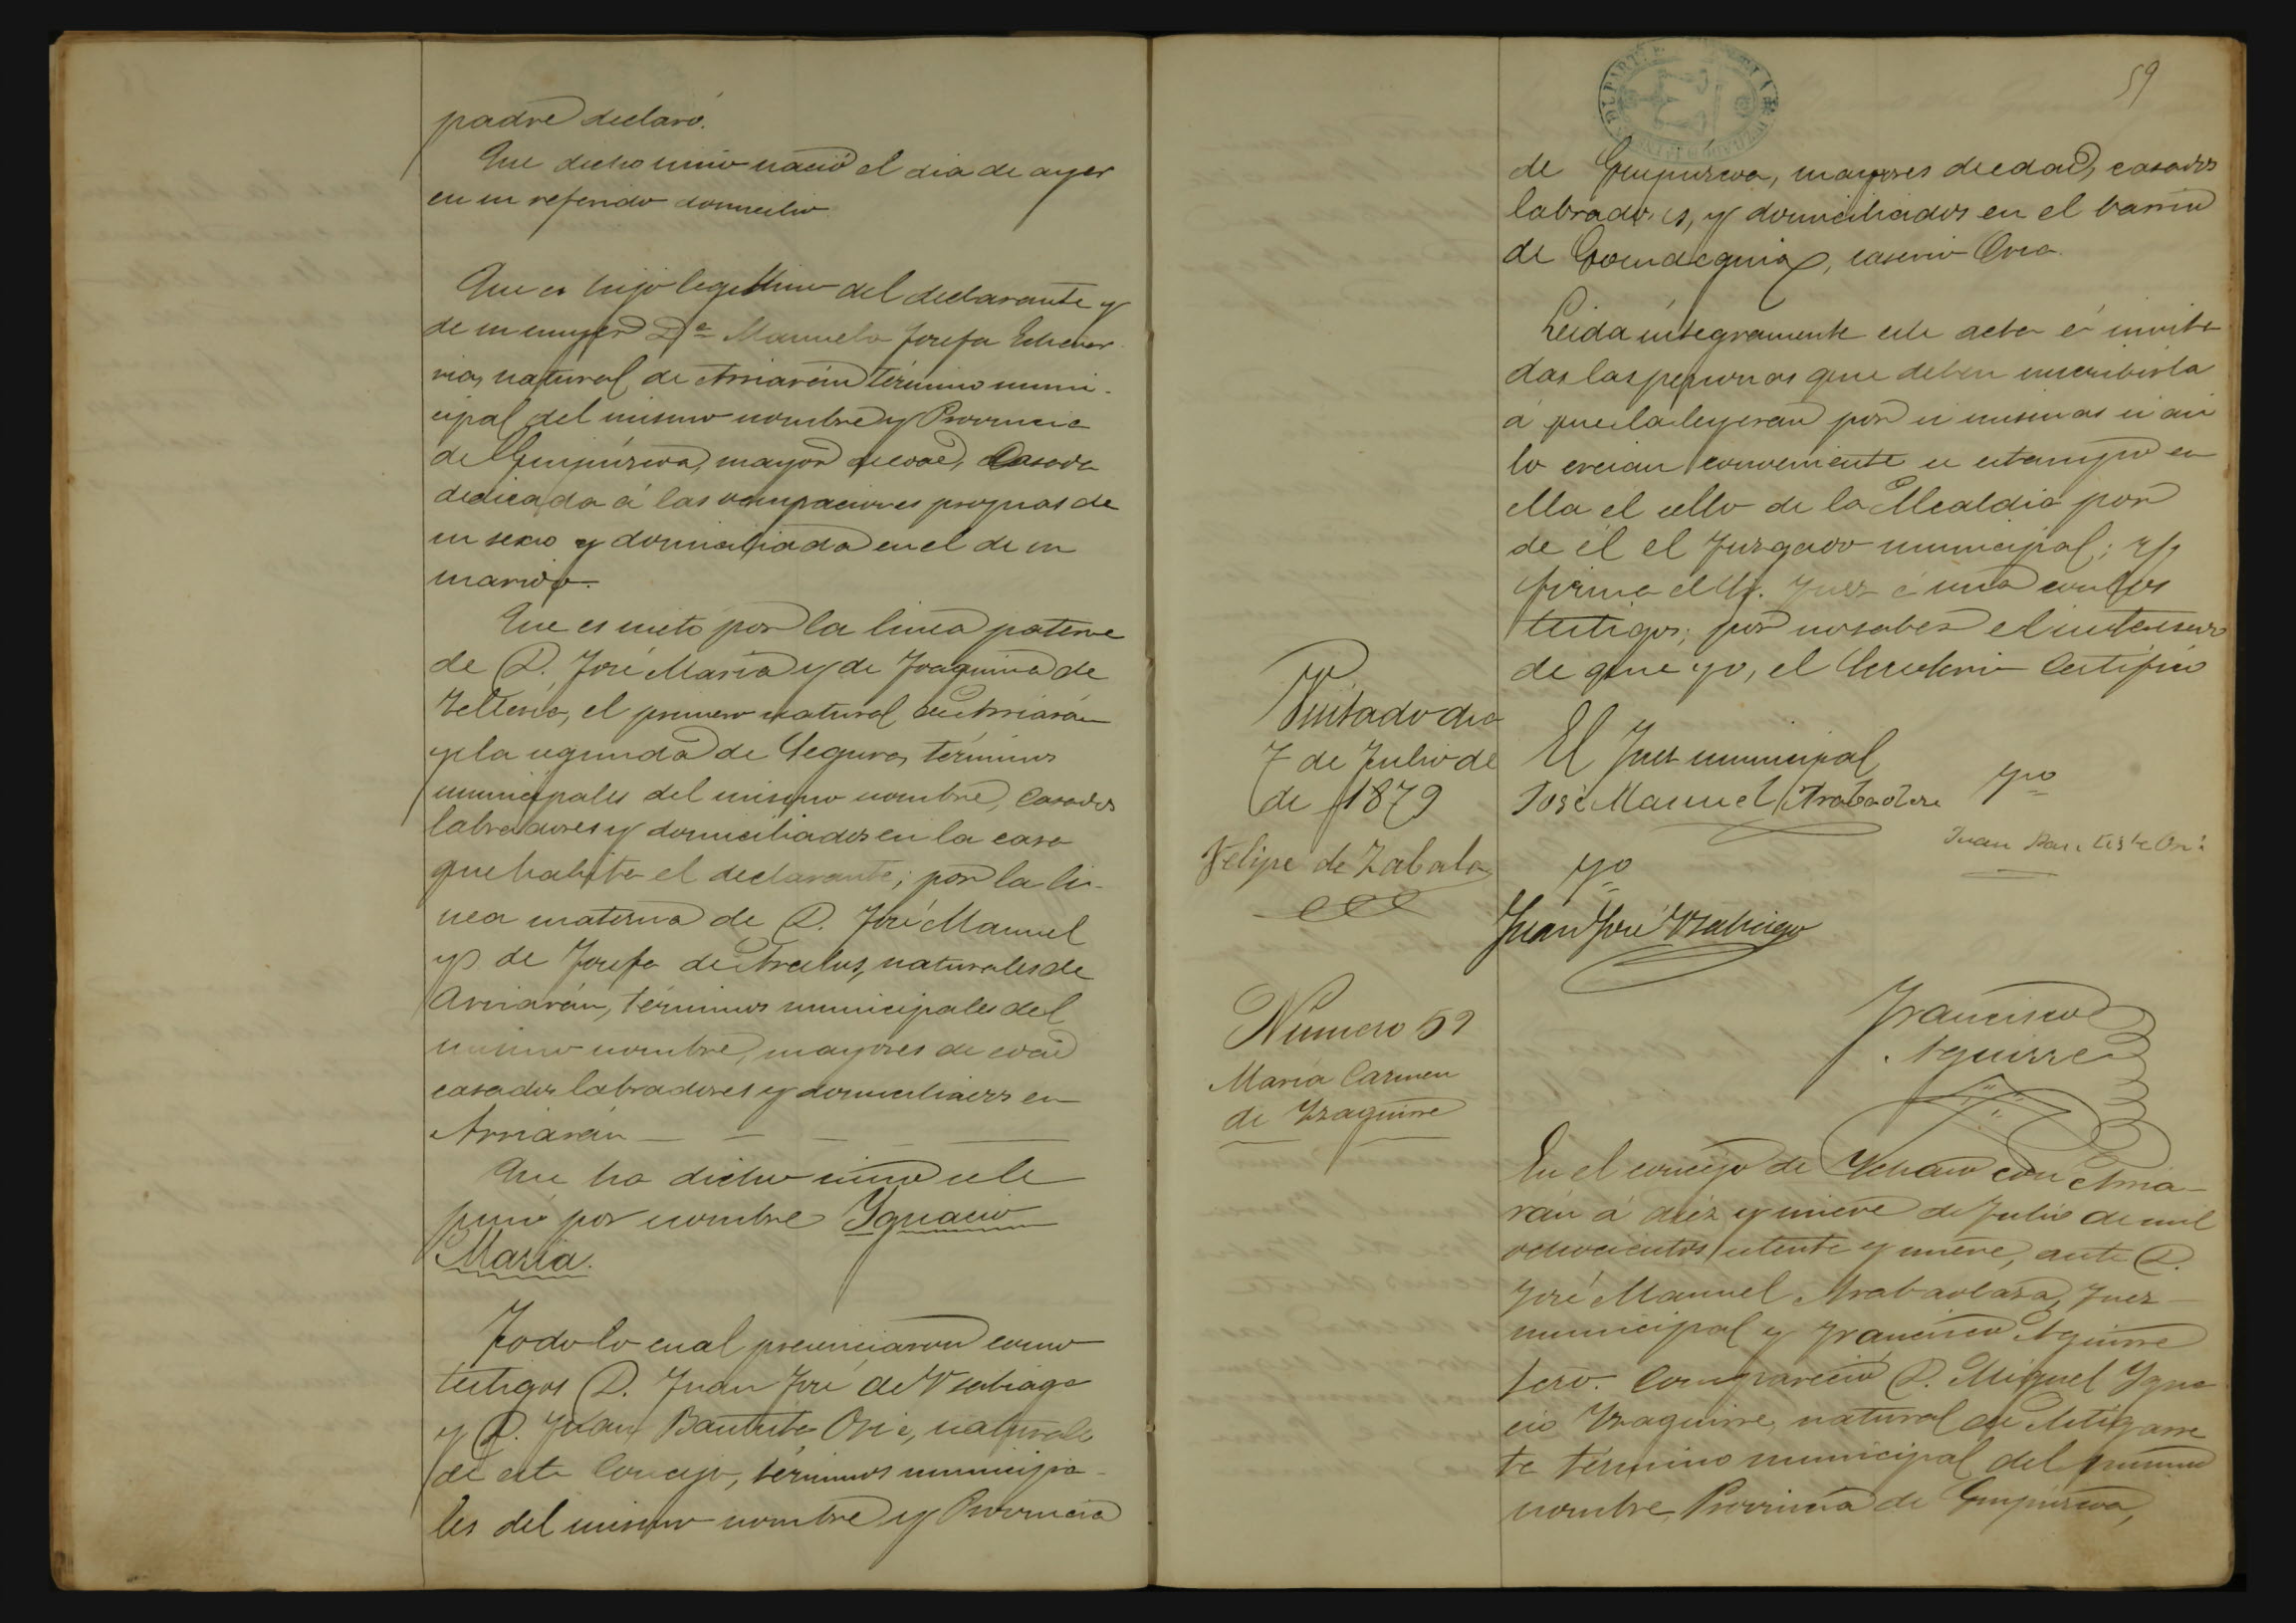 padre declaró.
Que dicho niño nació el dia de ayer
en su referido domicilio.
Que es hijo legitimo del declarante y
de su muger D.ª Manuela Josefa Echever-
ria, natural de Arriarán término muni-
cipal del mismo nombre y Provincia
de Guipúzcoa, mayor de edad, Casada
dedicada á las ocupaciones propias de
su sexo y domiciliada en el de su
marido.
Que es nieto por la linea paterna
de D. José Maria y de Joaquina de
Telleria, el primero natural de Arriarán
y la segunda de Segura, términos
municipales del mismo nombre, Casados
labradores y domiciliados en la casa
que habita el declarante; por la li-
nea materna de D. José Manuel
y de Josefa de naturales de
Arriarán, términos municipales del
mismo nombre, mayores de edad
casados labradores y domiciliados en
Arriarán
Que ha dicho niño se le
puso por nombre Ygnacio
Maria.
Todo lo cual presenciaron como
testigos D. Juan José de Usabiaga
y D. Juan Bautista Oria, naturales
de este Concejo, términos municipa-
les del mismo nombre y Provincia
59
de Guipuzcoa, mayores de edad, casados
labradores, y domiciliados en el barrio
de caserio Orea.
Leida íntegramente este acta é invita-
das las personas que deben suscribirla
á que la leyeran por si mismas si asi
lo creian conveniente se estampó en
ella el sello de la Alcaldia por
de él el Juzgado municipal; y
firma el Sr. Juez é una con los
testigos; por no saber el interesado
de que yo, el Secretario Certifico
Visitado dia
7 de Julio de
de 1879
Felipe de Zabala
El Juez municipal
José Manuel Arabaolaza
Juan Bautista Oria
Juan José Usabiaga
Francisco
Aguirre
Número 59
Maria Carmen
de Yzaguirre
En el concejo de Ychaso con Arria-
rán á diez y nueve de Julio de mil
ochocientos setenta y nueve, ante D.
José Manuel Arabaolaza, Juez
municipal y Francisco Aguirre
Srio. Compareció D. Miguel Ygna-
cio Yzaguirre, natural de Astigarre-
ta término municipal del mismo
nombre, Provincia de Guipúzcoa,